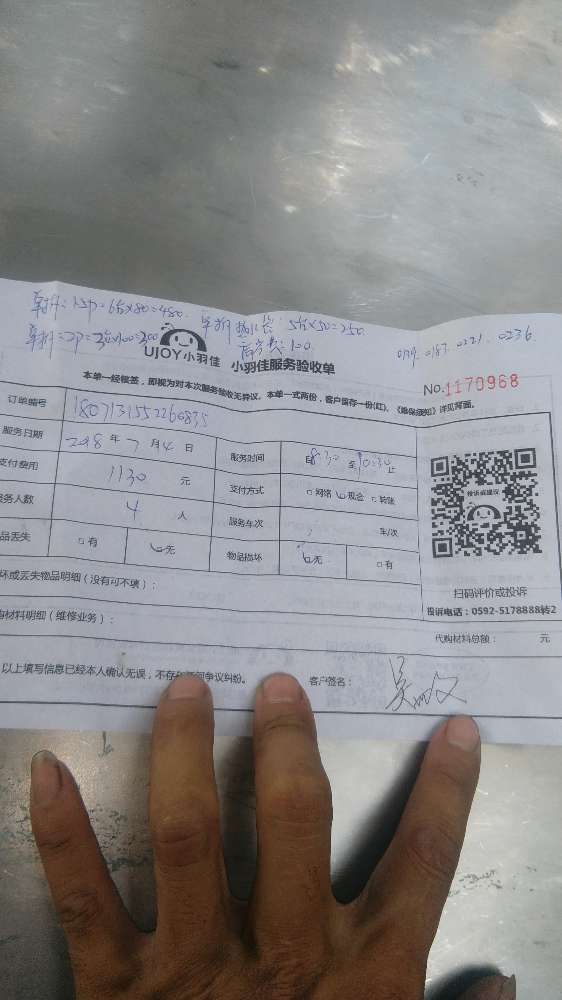 单拆:1.5P=6台×80=480. 单拆 5台×50=250.
单拆:2P=3台×100=300 高空费:100
0187. 0221. 0236.
UJOY小羽佳 小羽佳服务验收单
本单一经核签,即视为对本次服务验收无异议。本单一式两份,客户留存一份(红)。《维保须知》详见背面。
No.1170968
订单编号 1807131552260835
服务日期 2018 年 7 月 4 日 服务时间 自8:30 至10:30止
支付费用 1130 元 支付方式 □网络 □现金 □转账
服务人数 4 人 服务车次 车/次
品丢失 □有 □无 物品损坏 □无 □有
投诉或建议
扫码评价或投诉
投诉电话:0592-5178888转2
坏或丢失物品明细(没有可不填):
购材料明细(维修业务): 代购材料总额: 元
以上填写信息已经本人确认无误,不存在任何争议纠纷。 客户签名: